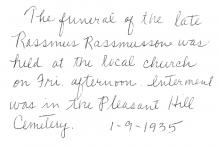 The funeral of the late
Rassmus Rassmusson was
held at the local church
on Fri. afternoon. Interment
was in the Pleasant Hill
Cemetery. 1-9-1935